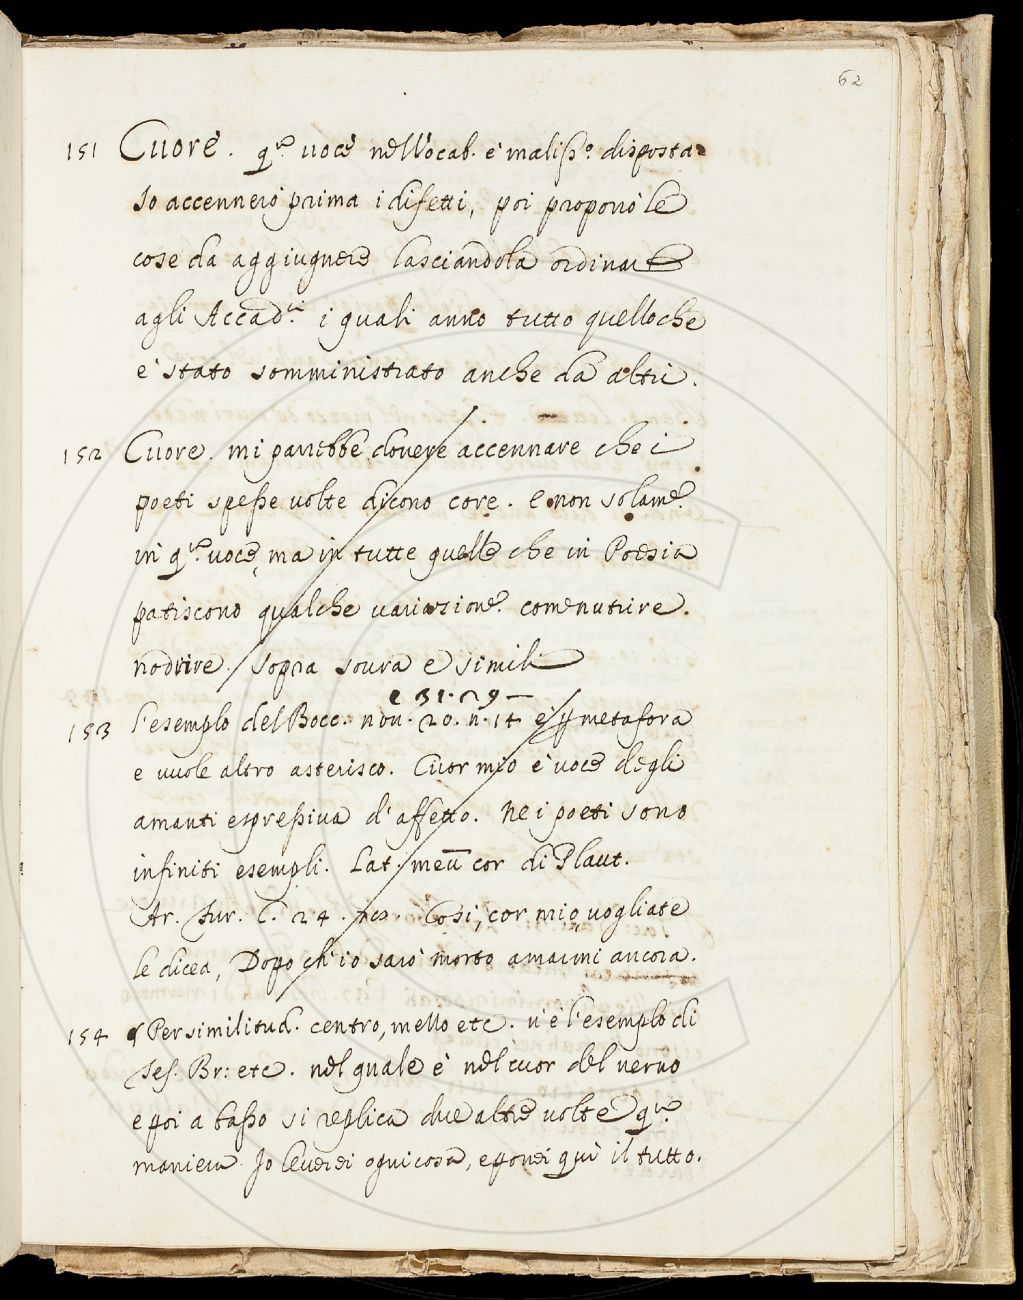 62
151 Cuore. q.ta voce nell'Vocab. è maliss.o disposta
Io accennerò prima i difetti, poi proporrò le
cose da aggiugnere lasciandola ordinare
agli Accad.ci i quali anno tutto quello che
è stato somministrato anche da altri.
152 Cuore. mi parrebbe dovere accennare che i
poeti spesse volte dicono core. e non solam.e
in q.ta voce, ma in tutte quelle che in Poesia
patiscono qualche variazione. come nutrire.
nodrire. sopra soura e simili
e 31. 29
153 l'esemplo del Bocc. nov. 20. n. 14 è metafora
e vuole altro asterisco. Cuor mio è voce degli
amanti espressiva d'affetto. Ne i poeti sono
infiniti esempli. Lat. meū cor di Plaut.
Ar. Fur. C. 24. Così, cor mio, vogliate
le dicea, Dopo ch'io sarò morto amarmi ancora.
154 Per similitud. centro, mezzo etc. v'è l'esemplo di
Tes. Br: etc. nel quale è nel cuor del verno
e poi a basso si replica due altre volte q.ta
maniera. Io leverei ogni cosa, e porrei quì il tutto.